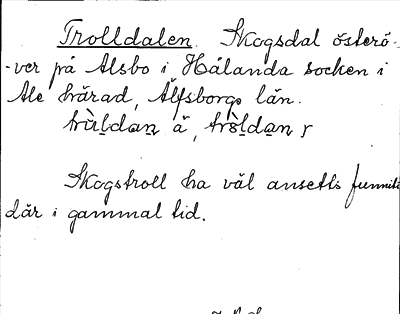 Trolldalen. Skogsdal österö-
-ver på Alsbo i Hålanda socken i
Ale härad, Älfsborgs län.
trùḷdaṉ å, tròḷdaṉ r
Skogstroll ha väl ansetts funnits
där i gammal tid.